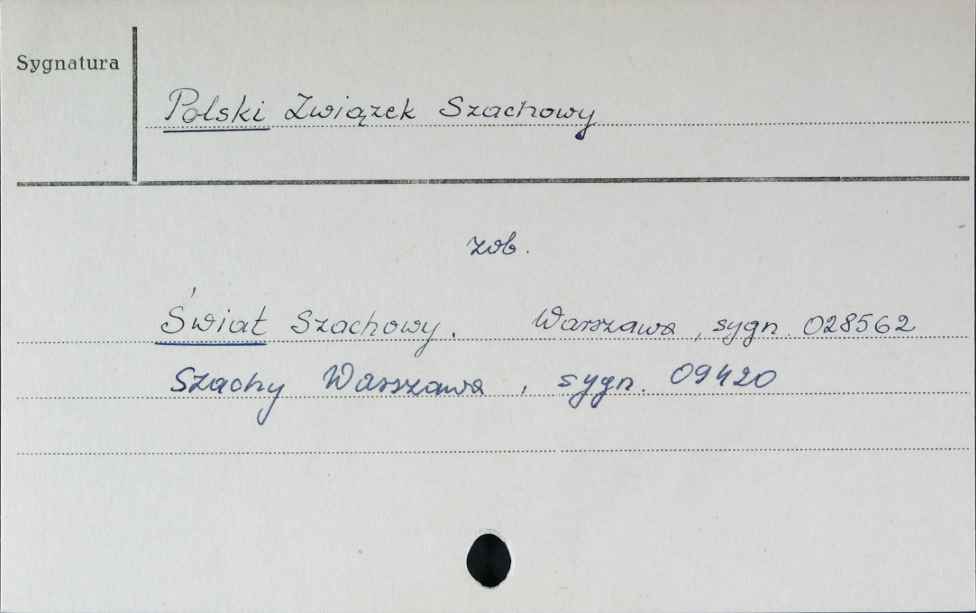 Sygnatura
Polski Związek Szachowy
zob.
Świat Szachowy. Warszawa, sygn. 028562
Szachy Warszawa, sygn. 09420